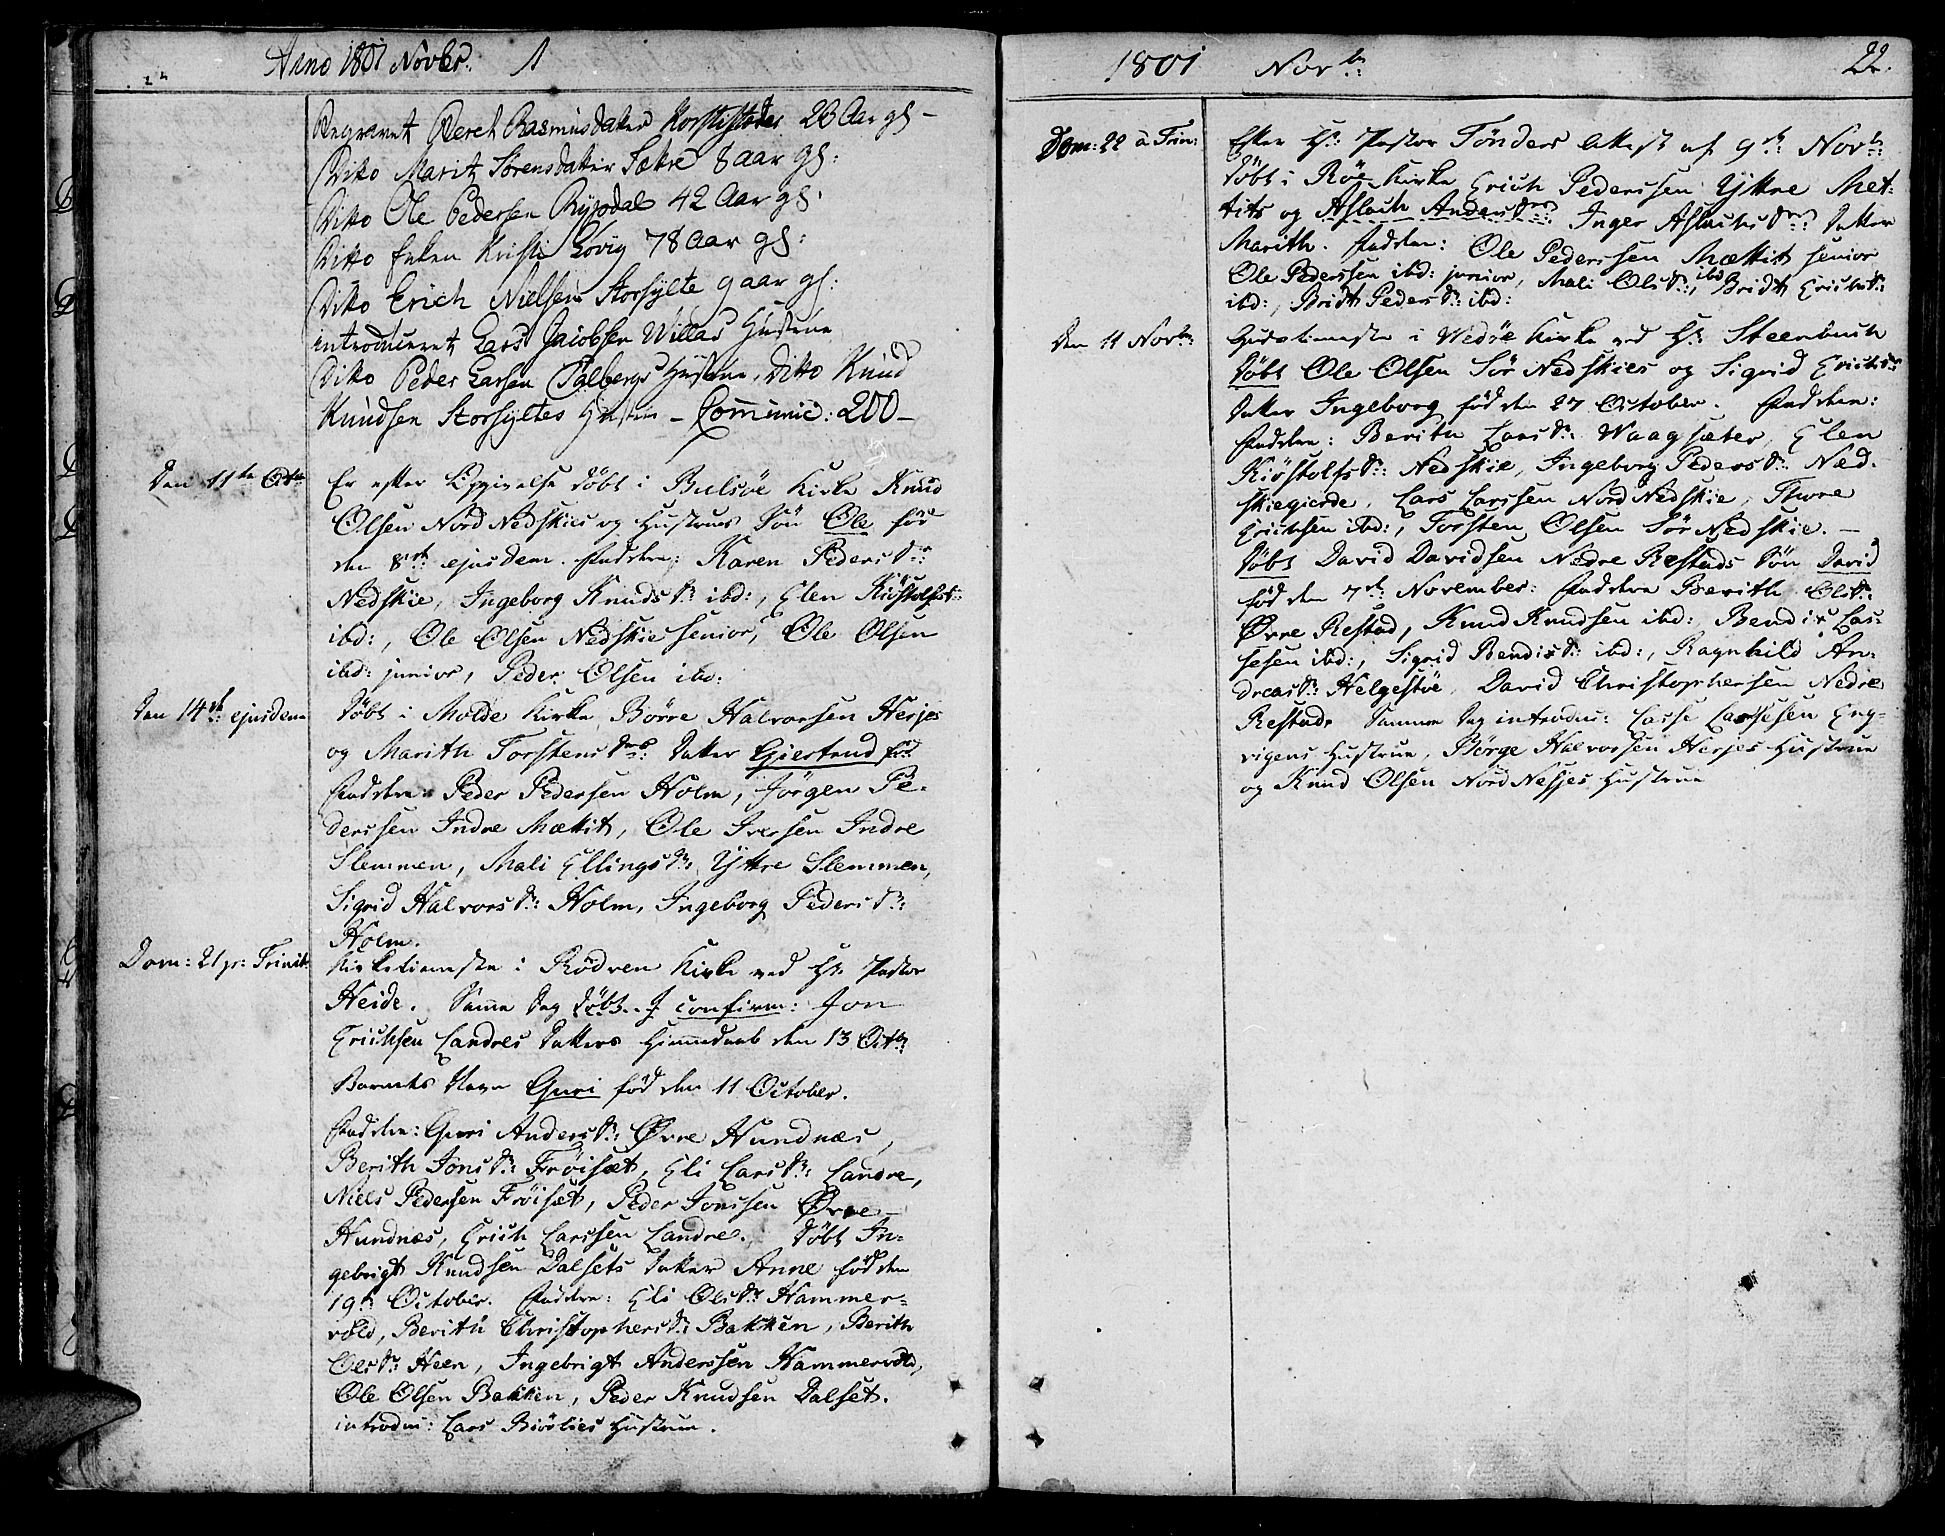 Anno 1801 Novbr: 1
Begravet Beret Rasmusdatter 23 Aar gl –
Ditto Marit Sørensdatter Sætre 8 aar gl:
Ditto Ole Pedersen Rypdal 42 Aar gl:
Ditto Enken Kristi Lovig 78 Aar gl:
Ditto Erich Nielsen Storhylte 9 aar gl:
introduceret Lars Jacobsen Hustrue
Ditto Peder Larsen Hustrue, Ditto Knud
Knudsen Storhyltes Hustrue – Communic: 200 –
Den 11te Octbr
Er efter Opgivelse døbt i Bulsøe Kirke Knud
Olsen Nord Nedskies og Hustrues Søn Ole fød
den 8de ejusdem. Faddere: Karen Peders Dr:
Nedskie, Ingeborg Knuds Dr: ibd:, Elen Kiøstolfsd:
ibd:, Ole Olsen Nedskie senior, Ole Olsen
ibd: junior, Peder Olsen ibd:
Den 14de: ejusdem
Døbt i Molde Kirke, Børre Halvorsen Herjes
og Marith Torstens Drs: Datter Giertrud fød
Faddere Peder Pedersen Holm, Jörgen Pe-
derssen Indre Mættit, Ole Iversen Indre
Slemmen, Mali Ellings Dr: Yttre Slemmen,
Sigrid Halvors Dr: Holm, Ingeborg Peders Dr:
Holm.
Dom: 21 p: Trinit:
Kirketieneste i Rødven Kirke ved Hr: Pastor
Heide. Samme Dag døbt confirm: Jon
Erichsen Landres Datters Hiemmedaab den 13 Octbr:
Barnets Navn Guri fød den 11 October.
Faddere: Guri Anders Dr: Øvre Hundnæs,
Berith Jons Dr: Frøiset, Eli Lars Dr: Landre,
Niels Pedersen Frøiset, Peder Jonssen Øvre
Hundnæs, Erich Larssen Landre. Døbt In-
gebrigt Knudsen Dalsets Datter Anne fød den
19de October. Faddere: Eli Ols Dr: Hammer-
vold, Berith Christophers Dr: Bakken, Berith
Ols Dr: Heen, Ingebrigt Anderssen Hammervold,
Ole Olsen Bakken, Peder Knudsen Dalset.
introdu: Lars Hustrue.
1801 Novbr: 22.
Dom: 22 a Trin:
Efter Hr: Pastor Tönders Attest af 9de Novbr:
døbt i Röe Kirke Erich Pederssen Yttre Met-
tits og Aslach Anders Drs: Inger Aslachs Drs: Datter
Marith. Faddere: Ole Pederssen Mættit senior
Ole Pederssen ibd: junior, Mali Ols Dr: ibd, Bridt Erichs Dr:
ibd:, Bridt Peders Dr: ibd:
Den 11 Novbr:
Gudstieneste i Vedøe Kirke ved Hr: Steenbuch
Døbt Ole Olsen Sör Nedskies og Sigrid Erichs Drs
Datter Ingeborg fød den 27 October. Faddere:
Faddere: Berith Lars Dr: Waagsæter, Elen
Kiöstolfs Dr: Nedskie, Ingeborg Peders Dr: Ned-
skiegierde, Lars Larssen Nord Nedskie, Thore
Erichsen ibd:, Torsten Olsen Sör Nedskie. –
Døbt David Davidsen Nedre Restads Søn David
fød den 7de November: Faddere Berith Ols Dr:
Øvre Restad, Knud Knudsen ibd:, Bendix Las-
sesen ibd:, Sigrid Bendix Dr: ibd:, Ragnhild An-
dreas Dr: Helgestöe, David Christophersen Nedre
Restad. Samme Dag introdus: Lasse Lassesen Eng-
vigens Hustrue, Börge Halvorsen Herjes Hustrue
og Knud Olsen Nord Nesjes Hustrue